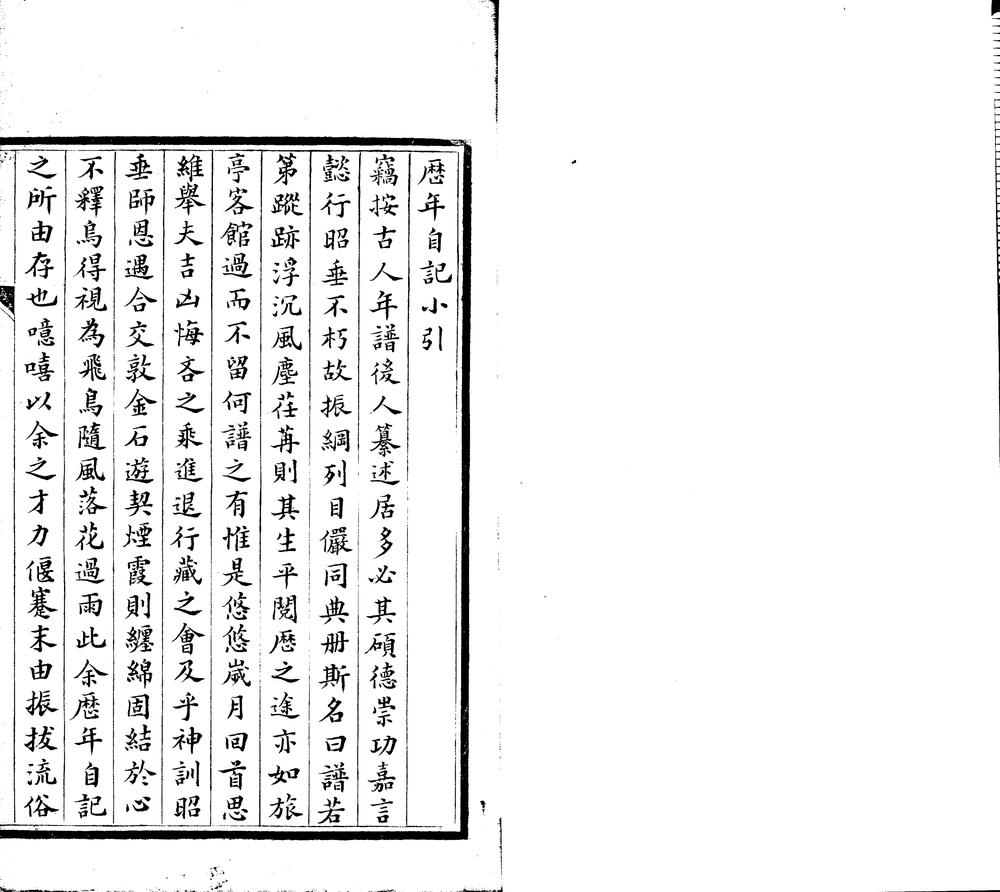 歷年自記小引
竊按古人年譜後人纂述居多必其碩德崇功嘉言
懿行昭垂不朽故振綱列目儼同典册斯名曰譜若
第蹤跡浮沉風塵荏苒則其生平閱歷之途亦如旅
亭客館過而不留何譜之有惟是悠悠嵗月回首思
維舉夫吉凶悔吝之乘進退行藏之會及乎神訓昭
垂師恩遇合交敦金石遊契煙霞則纏綿固結於心
不釋烏得視為飛鳥隨風落花過雨此余歷年自記
之所由存也噫嘻以余之才力偃蹇末由振拔流俗